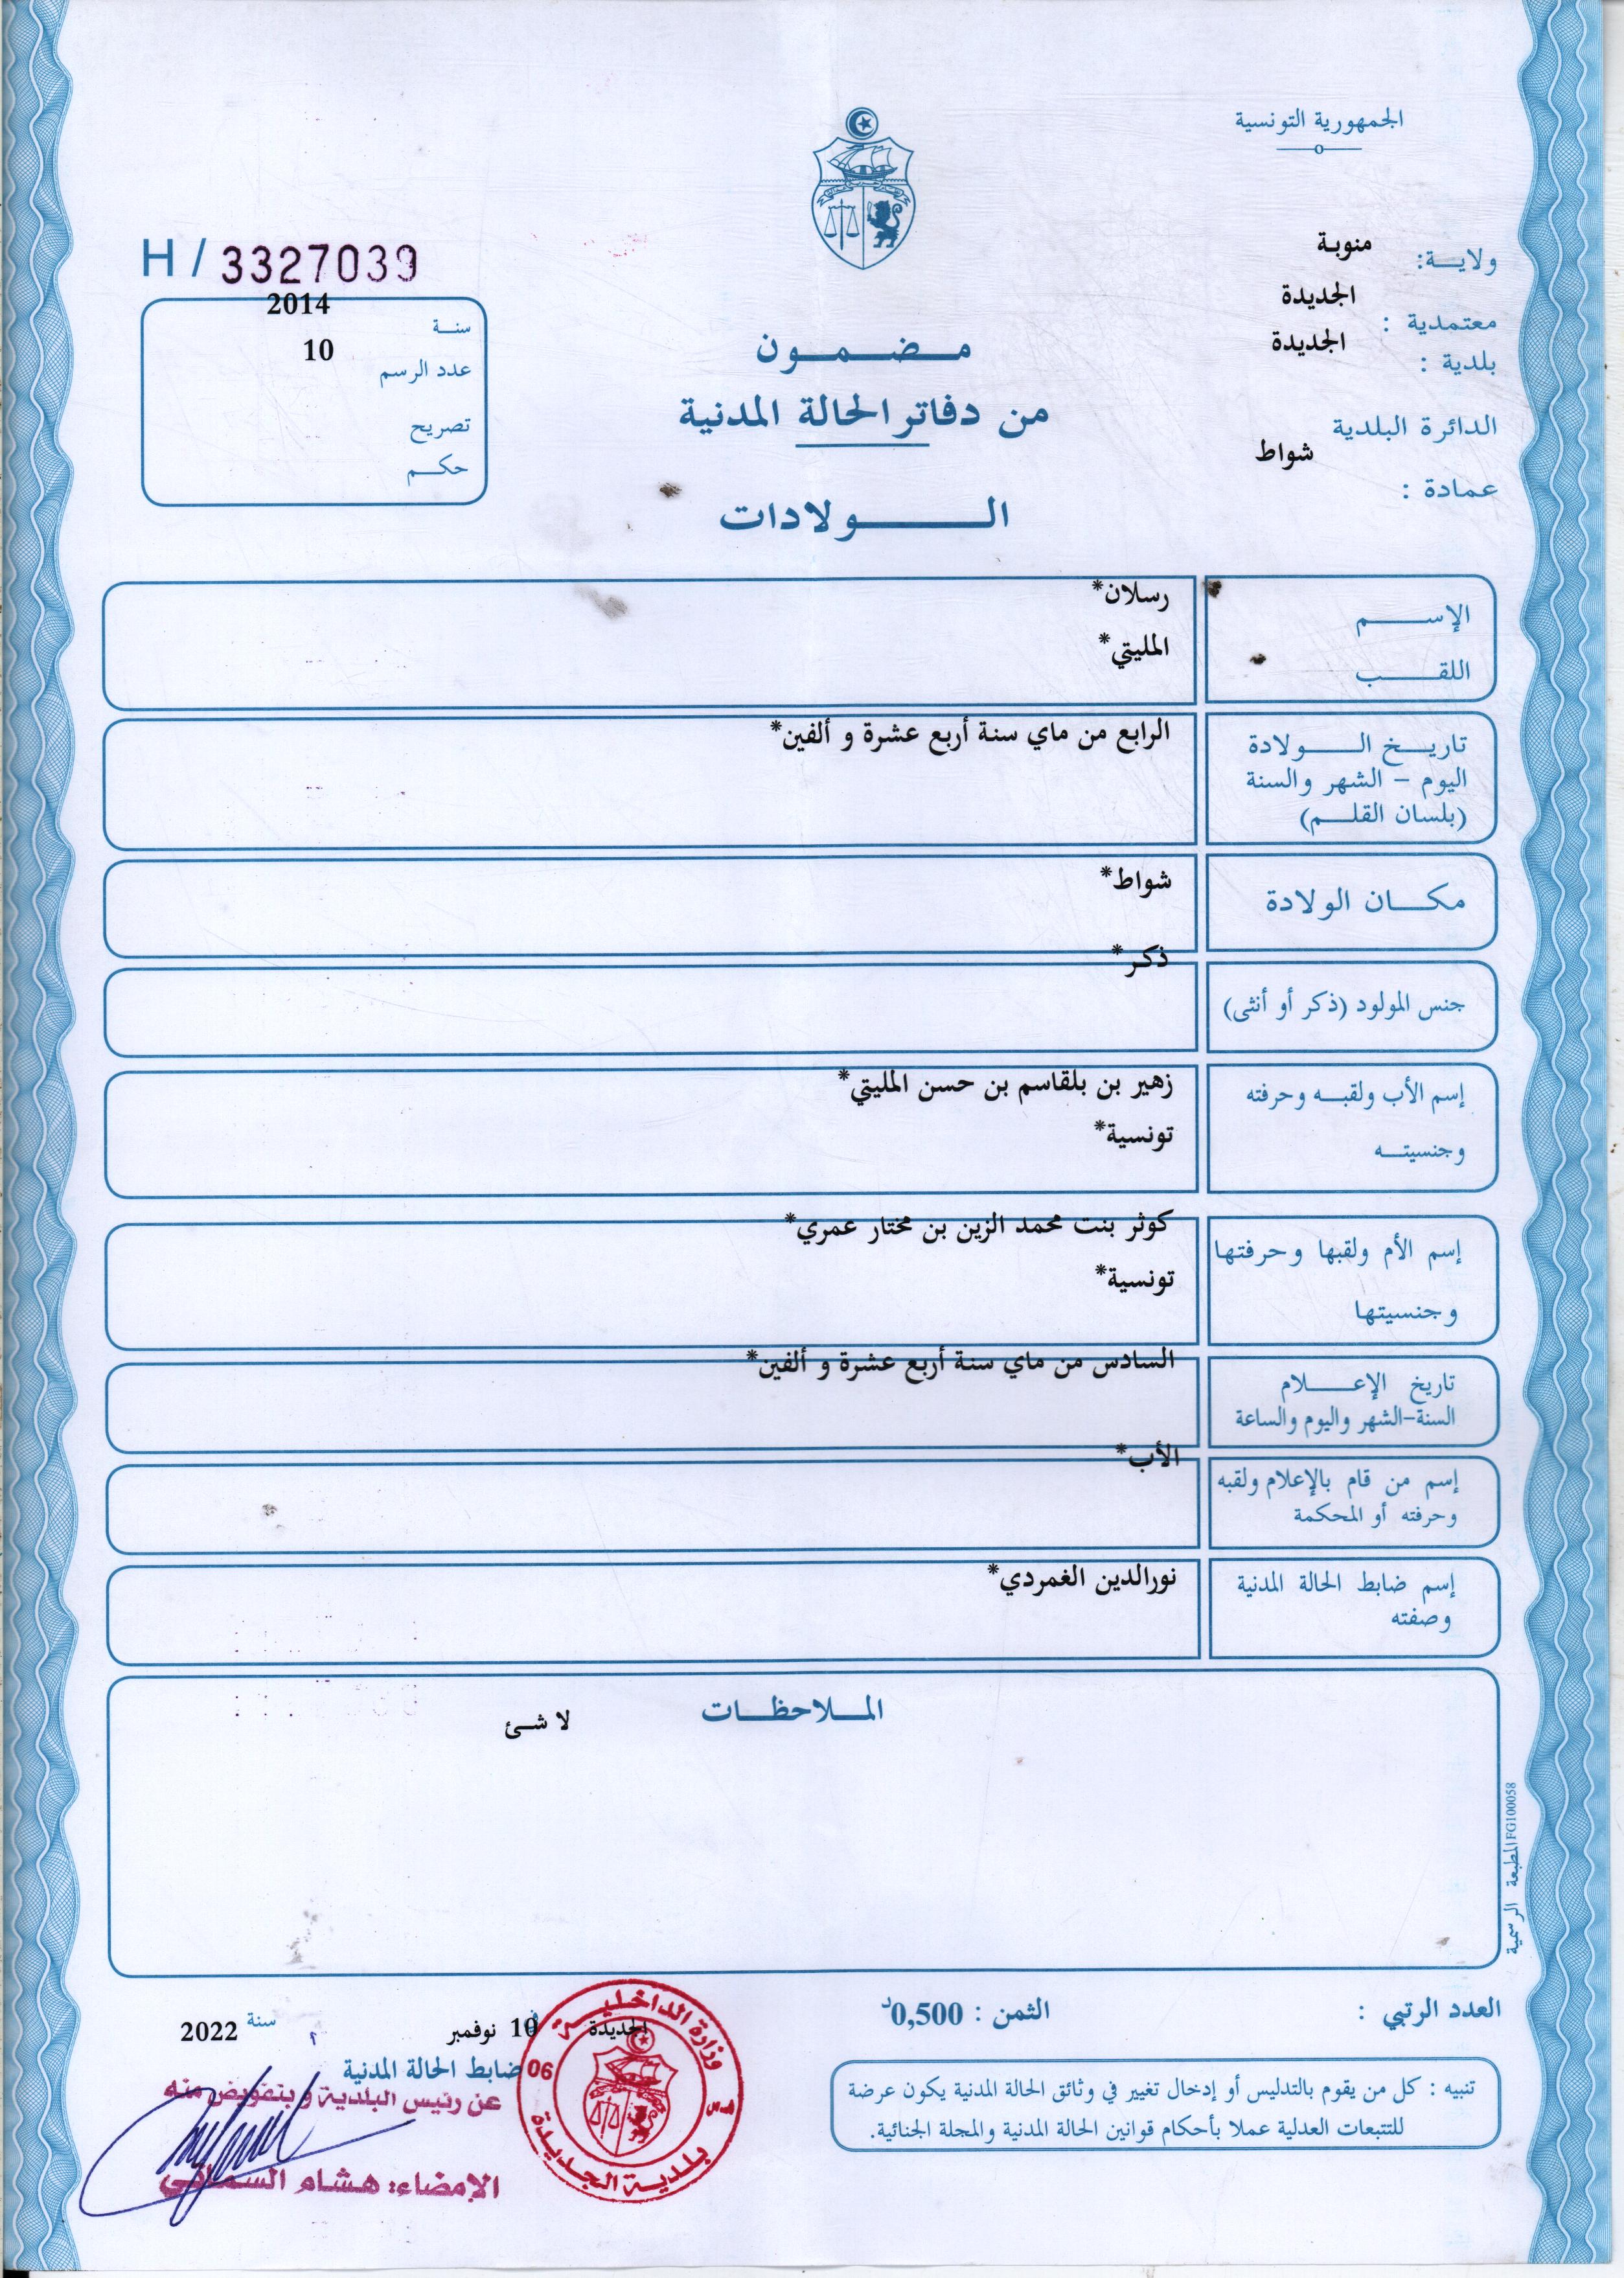 الجمهورية التونسية
ولاية: منوبة
معتمدية : الجديدة
بلدية : الجديدة
الدائرة البلدية
عمادة : شواط
H / 3327039
سنة 2014
عدد الرسم 10
تصريح
حكم
مضمون
من دفاتر الحالة المدنية
الولادات
الإسم رسلان*
اللقب المليتي*
تاريخ الولادة الرابع من ماي سنة أربع عشرة و ألفين*
اليوم - الشهر والسنة
(بلسان القلم)
مكان الولادة شواط*
جنس المولود (ذكر أو أنثى) ذكر*
إسم الأب ولقبه وحرفته زهير بن بلقاسم بن حسن المليتي*
وجنسيته تونسية*
إسم الأم ولقبها وحرفتها كوثر بنت محمد الزين بن مختار عمري*
وجنسيتها تونسية*
تاريخ الإعلام السادس من ماي سنة أربع عشرة و ألفين*
السنة-الشهر واليوم والساعة
إسم من قام بالإعلام ولقبه الأب*
وحرفته أو المحكمة
إسم ضابط الحالة المدنية نورالدين الغمردي*
وصفته
الملاحظات
لا شئ
المطبعة الرسمية FG100058
العدد الرتبي :
الثمن : 0,500د
تنبيه : كل من يقوم بالتدليس أو إدخال تغيير في وثائق الحالة المدنية يكون عرضة
للتتبعات العدلية عملا بأحكام قوانين الحالة المدنية والمجلة الجنائية.
الجديدة في 10 نوفمبر سنة 2022
ضابط الحالة المدنية
عن رئيس البلدية و بتفويض منه
الإمضاء: هشام
وزارة الداخلية
06
بلدية الجديدة